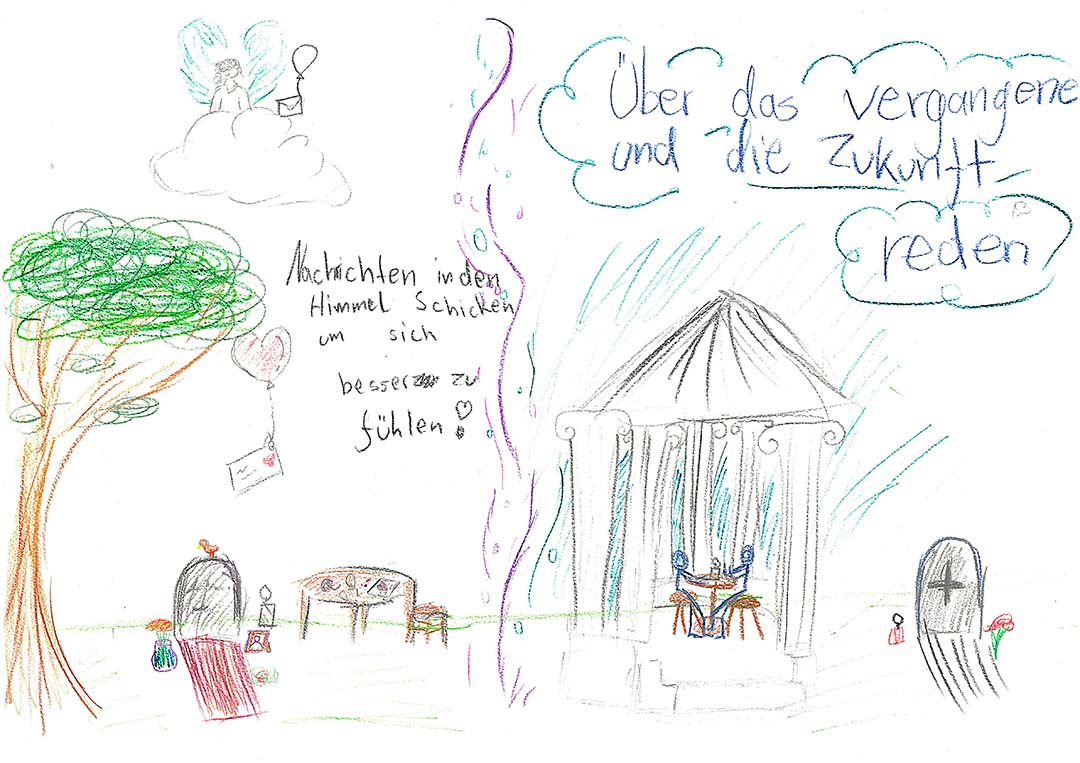 Nachichten in den
Himmel Schicken
um sich
besser zu
fühlen!
Über das vergangene
und die Zukunft
reden